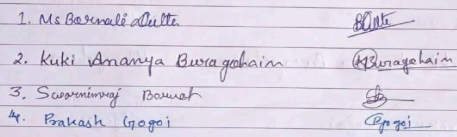 1. Ms Barnali Dutta.
2. Kuki Ananya Buragohain Buragohain
3. Baruah
4. Prakash Gogoi Gogoi